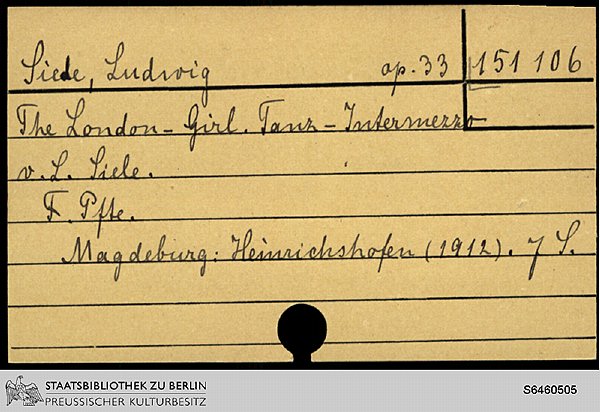 Siede, Ludwig op. 33 151 106
The London-Girl. Tanz-Intermezzo
v. L. Siele.
F. Pfte.
Magdeburg: Heinrichshofen (1912). 7 S.
STAATSBIBLIOTHEK ZU BERLIN
PREUSSISCHER KULTURBESITZ
S6460505